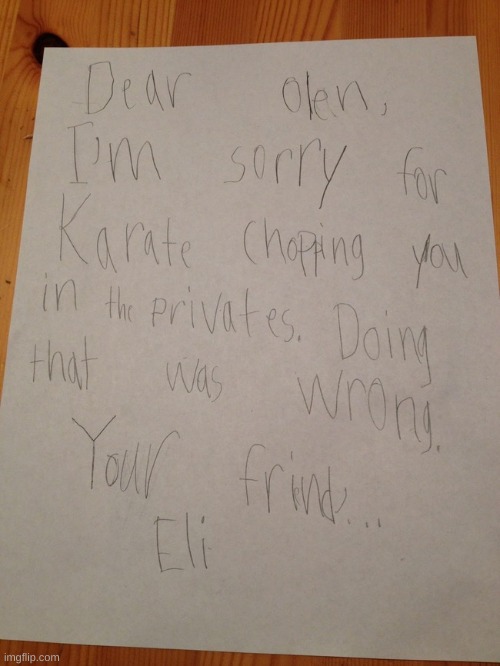 Dear Olen,
I'm sorry for
Karate Chopping you
in the privates. Doing
that was wrong.
Your frind...
Eli
imgflip.com